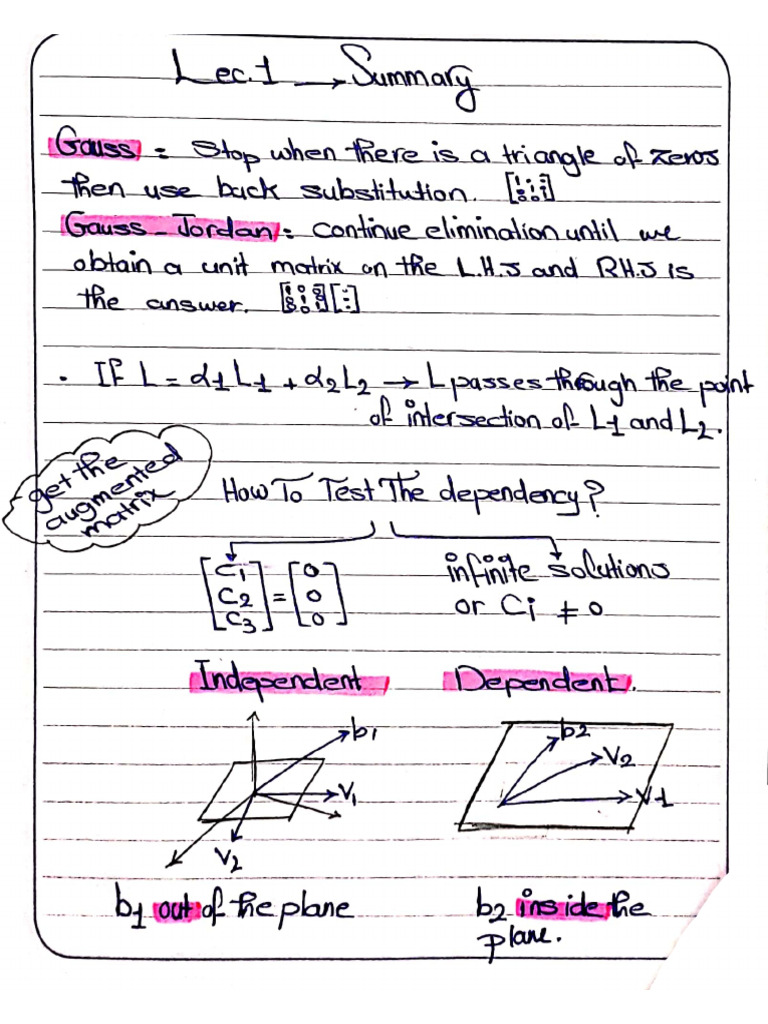 Lec.1 → Summary
Gauss = Stop when there is a triangle of zeros
then use back substitution.
Gauss-Jordan = continue elimination until we
obtain a unit matrix on the L.H.S and R.H.S is
the answer.
. If L = α1L1 + α2L2 → L passes through the point
of intersection of L1 and L2.
get the
augmented
matrix
How To Test The dependency?
[C1 C2 C3] = [0 0 0]
infinite solutions
or Ci ≠ 0
Independent
Dependent.
b1
V1
V2
b2
V2
V1
b1 out of the plane
b2 inside the
plane.